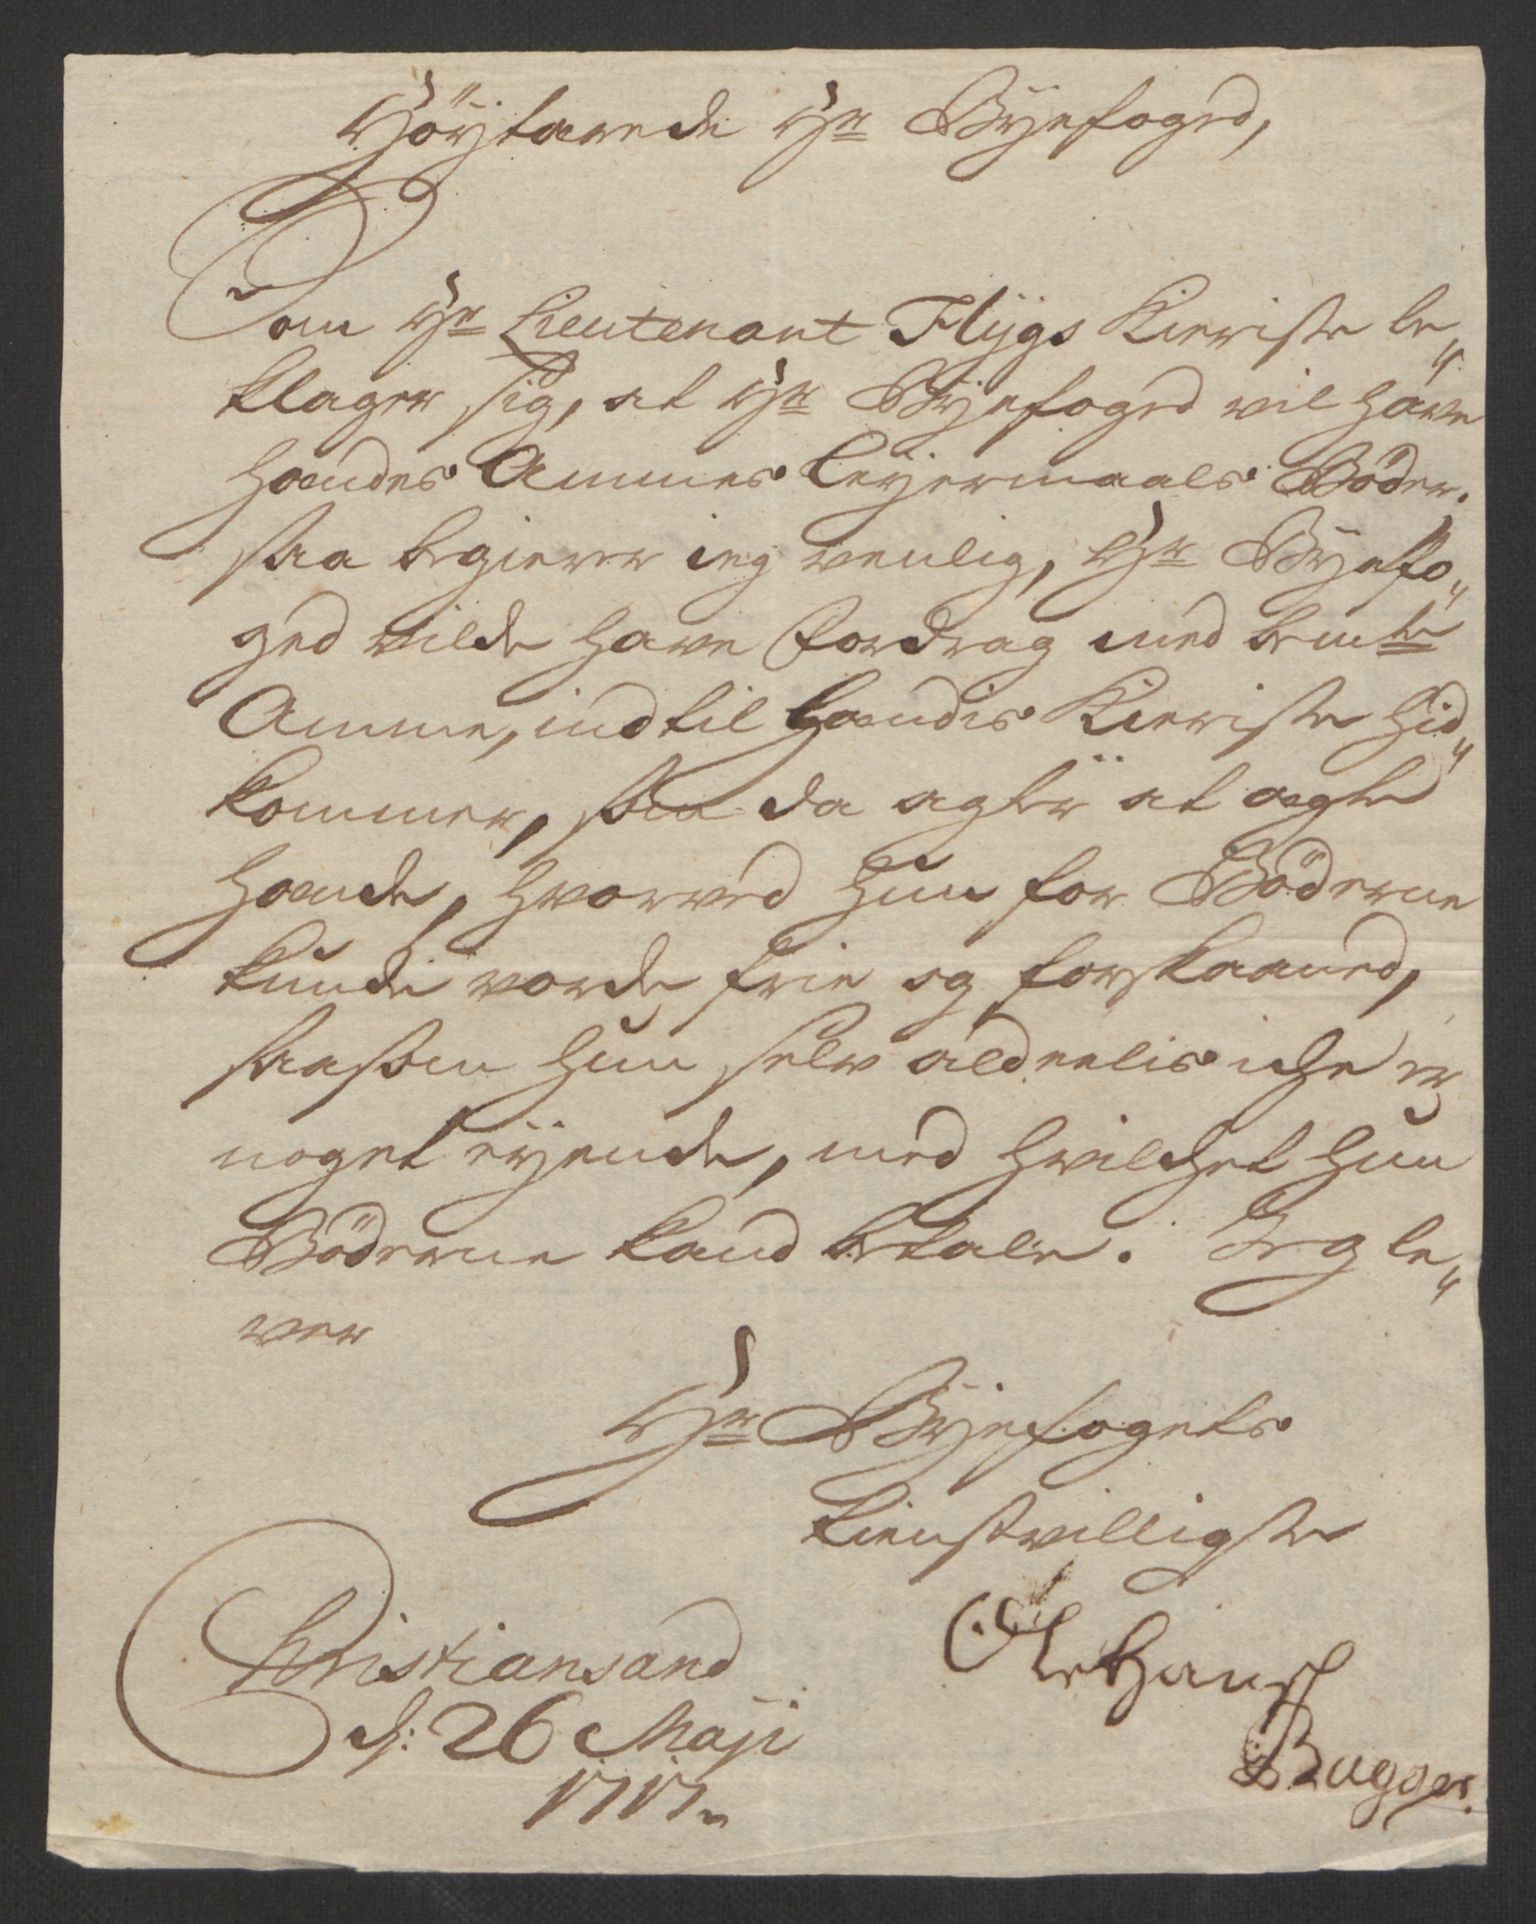 Höÿtærede Hr Byefoged,
Som Hr Lieutenant Flÿgs Kieriste be„
klager sig, at Hr Byefoged vil have
hændes Ammes Leyermaals Böder.
saa begierer ieg venlig, Hr Byefo„
ged vilde have fordrag med bemte
Amme, indtil hændis Kieriste hid„
kommer, som da agter at ægte
hænde, hvorved hun for Böderne
kunde vorde frie og forskaaned,
saasom hun selv aldeelis iche er
noget eÿende, med hvilchet hun
Böderne kand betale. Jeg le„
ver
Hr Byefogets
tienstvilligste
Christiansand
d: 26 Maji
1717
Ole Hansß
Bugger.